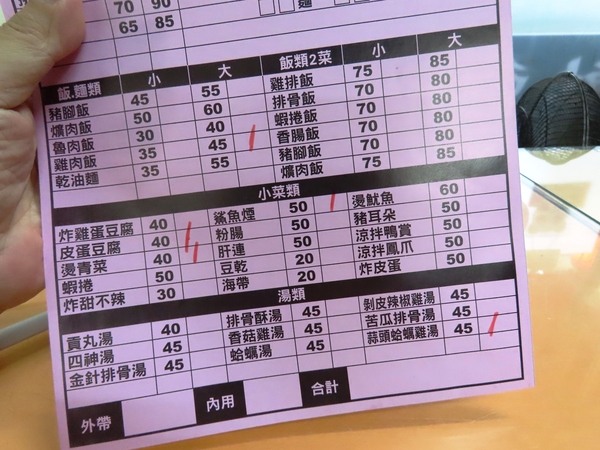 70 90
65 85 麵
飯.麵類 小 大 飯類2菜 小 大
豬腳飯 45 55 雞排飯 75 85
爌肉飯 50 60 排骨飯 70 80
魯肉飯 30 40 蝦捲飯 70 80
雞肉飯 35 45 香腸飯 70 80
乾油麵 35 55 豬腳飯 70 80
爌肉飯 75 85
小菜類
炸雞蛋豆腐 40 鯊魚煙 50 燙魷魚 60
皮蛋豆腐 40 粉腸 50 豬耳朵 50
燙青菜 40 肝連 50 涼拌鴨賞 50
蝦捲 50 豆乾 20 涼拌鳳爪 50
炸甜不辣 30 海帶 20 炸皮蛋 50
湯類
貢丸湯 40 排骨酥湯 45 剝皮辣椒雞湯 45
四神湯 45 香菇雞湯 45 苦瓜排骨湯 45
金針排骨湯 45 蛤蠣湯 45 蒜頭蛤蠣雞湯 45
外帶 內用 合計